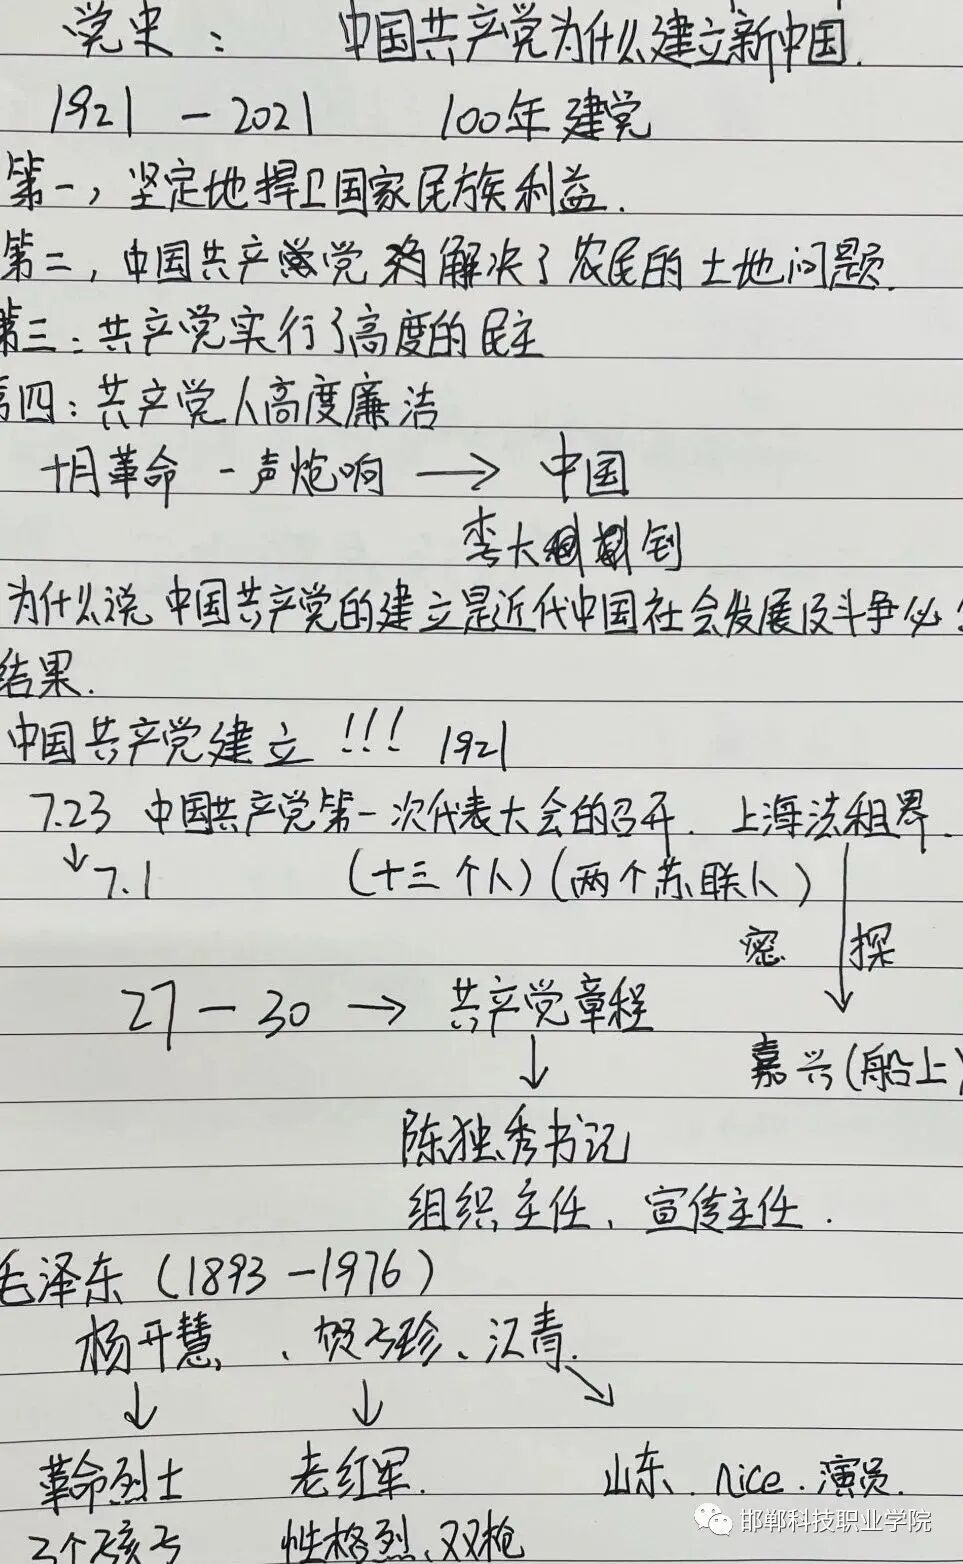 党史： 中国共产党为什么建立新中国.
1921 — 2021 100年建党
第一，坚定地捍卫国家民族利益.
第二，中国共产党 解决了农民的土地问题.
第三：共产党实行了高度的民主
第四：共产党人高度廉洁
十月革命 一声炮响 → 中国
李大钊
为什么说中国共产党的建立是近代中国社会发展及斗争必
结果.
中国共产党建立 !!! 1921
7.23 中国共产党第一次代表大会的召开. 上海法租界.
↓7.1 (十三个人)(两个苏联人)
密探
27 — 30 → 共产党章程
嘉兴(船上)
陈独秀书记
组织主任、宣传主任.
毛泽东 (1893 — 1976)
杨开慧、贺子珍、江青.
革命烈士 老红军. 山东. nice. 演员.
3个孩子 性格烈、双枪
邯郸科技职业学院